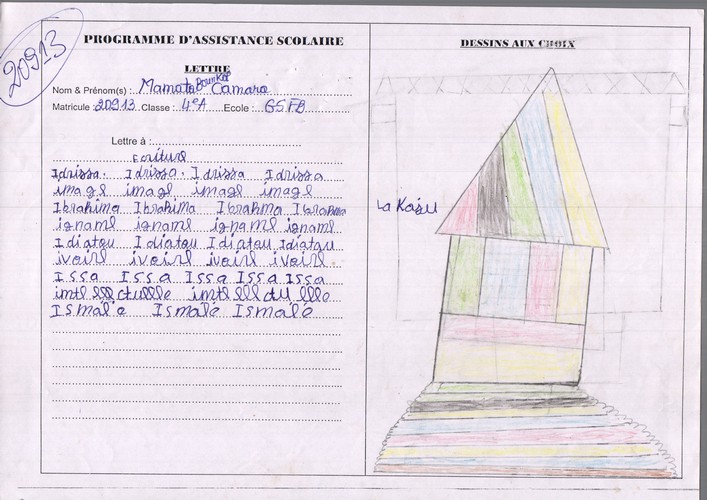 20913
PROGRAMME D'ASSISTANCE SCOLAIRE
LETTRE
Nom & Prénom(s) : Mamata Camara
Matricule : 20913 Classe : 4eA Ecole : GSFB
Lettre à :
Ecriture
Idrissa. Idrissa. Idrissa Idrissa
image image image image
Ibrahima Ibrahima Ibrahima Ibrahima
igname igname igname igname
Idiatou Idiatou Idiatou Idiatou
ivoire ivoire ivoire ivoire
Issa Issa Issa Issa Issa
Ismale Ismale Ismale
DESSINS AUX CHOIX
La Kasu